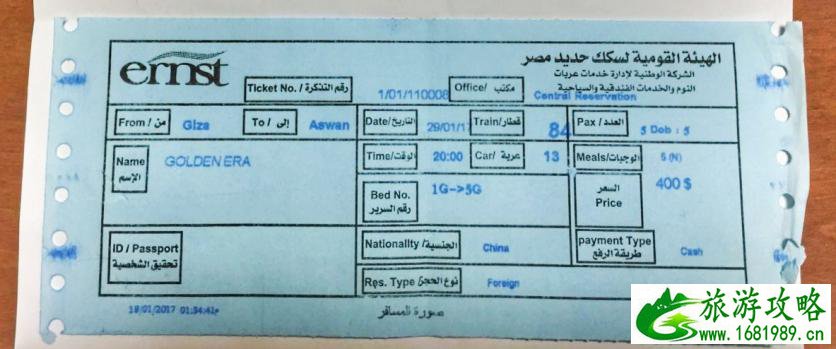 ernst
الهيئة القومية لسكك حديد مصر
الشركة الوطنية لإدارة خدمات عربات
النوم والخدمات الفندقية والسياحية
Ticket No. / رقم التذكرة 1/01/110008 Office/ مكتب Central Reservation
From / من Giza To / إلى Aswan Date/التاريخ 29/01/1 Train/قطار 84 Pax / العدد 5 Dob : 5
Name الإسم GOLDEN ERA Time/الوقت 20:00 Car/ عربة 13 Meals/الوجبات 5 (N)
Bed No. رقم السرير 1G->5G السعر Price 400 $
ID / Passport تحقيق الشخصية Nationality/الجنسية China payment Type طريقة الرفع Cash
Res. Type / نوع الحجز Foreign
18/01/2017 01:34:41م صورة المسافر
旅游攻略
www.1681989.cn